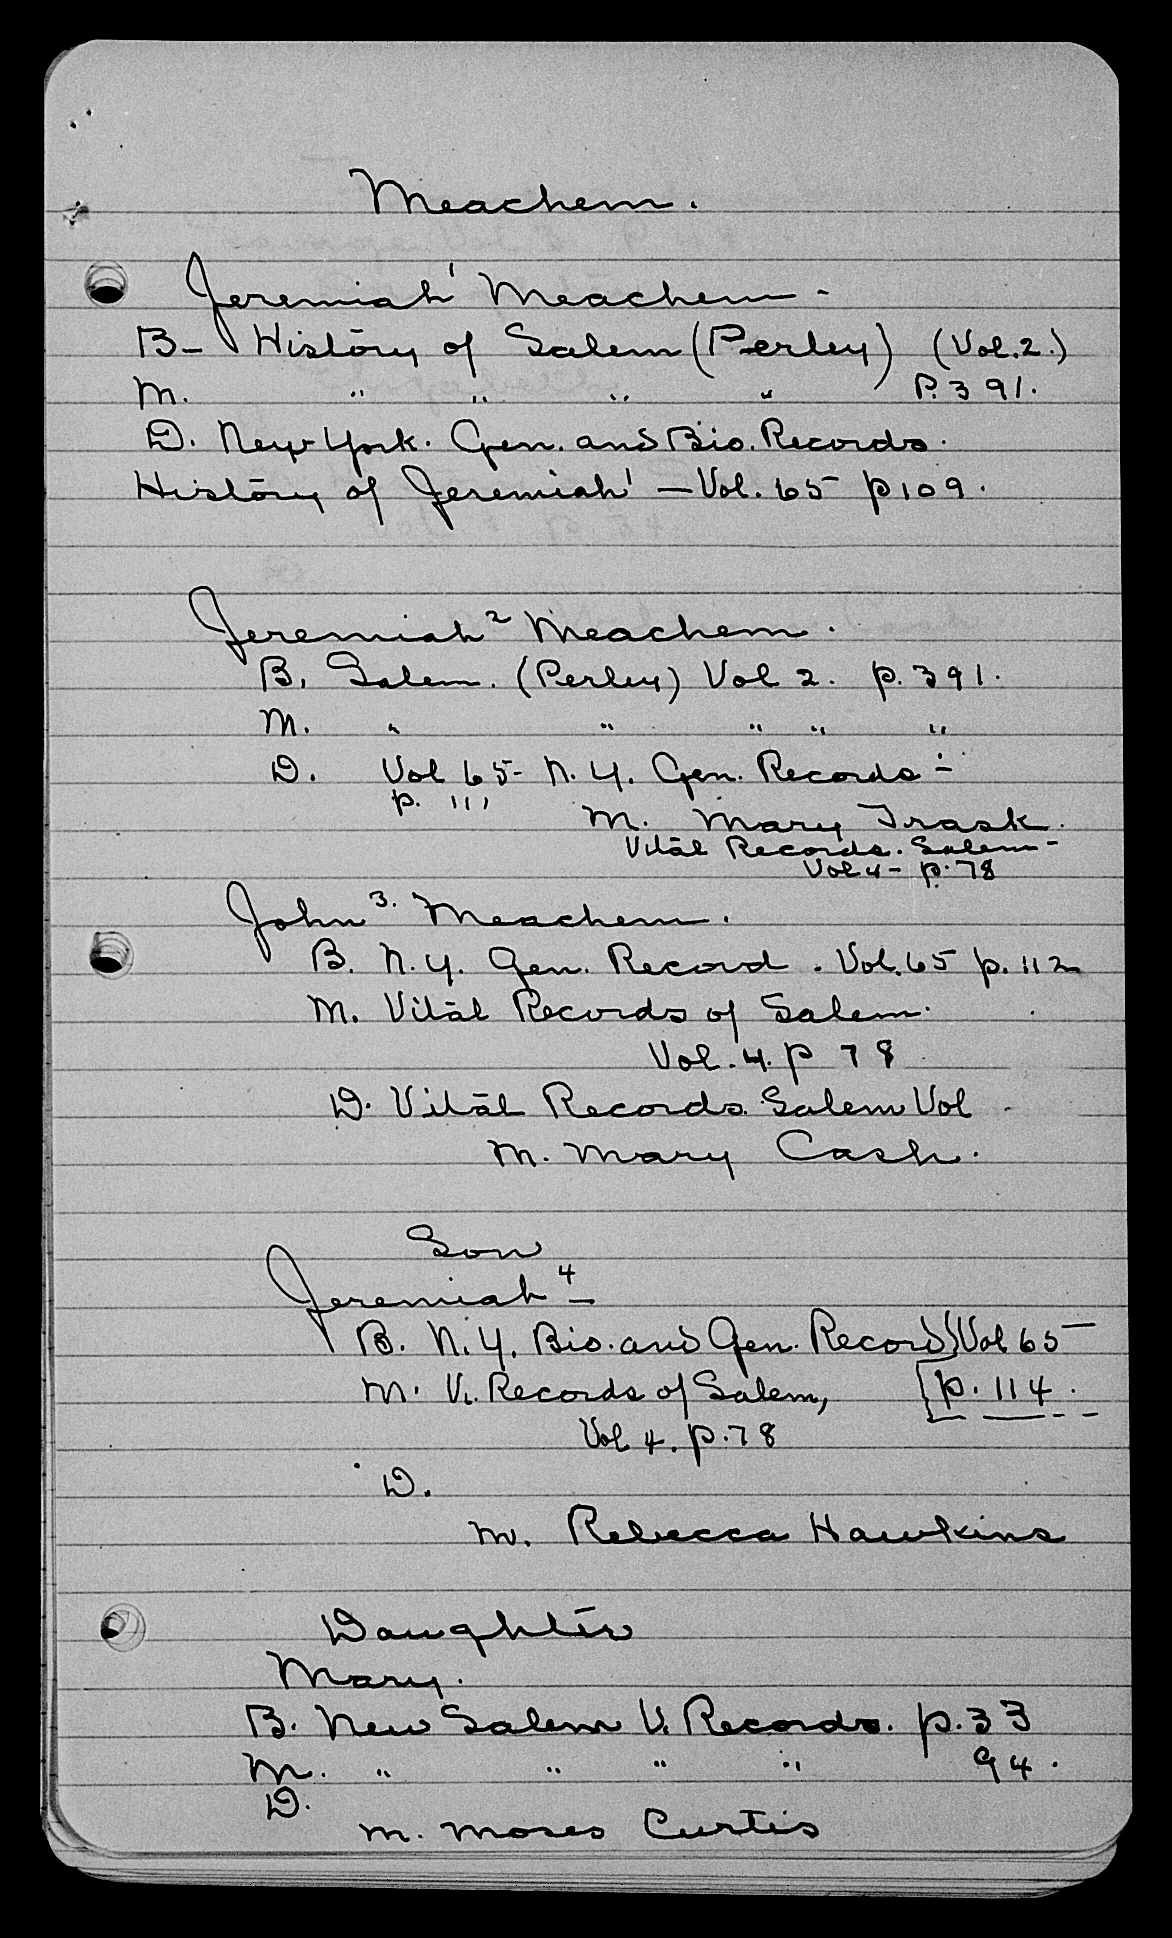 Meachem.
Jeremiah¹ Meachem -
B- History of Salem (Perley) (Vol. 2.)
M. " " " " P. 391.
D. New York. Gen. and Bio. Records.
History of Jeremiah¹ - Vol. 65 p 109.
Jeremiah² Meachem.
B. Salem. (Perley) Vol 2. p. 391.
M. " " " " "
D. Vol 65- N.Y. Gen. Records -
p. 111
M. Mary Trask.
Vital Records. Salem -
Vol 4 - p. 78
John³. Meachem.
B. N.Y. Gen. Record. Vol. 65 p. 112
M. Vital Records of Salem.
Vol. 4. p 78
D. Vital Records. Salem Vol
M. Mary Cash.
Son
Jeremiah⁴ -
B. N.Y. Bio. and Gen. Record} Vol 65
M. V. Records of Salem, [p. 114.
Vol 4. p. 78
D.
M. Rebecca Hawkins
Daughter
Mary.
B. New Salem V. Records. p. 33
M. " " " " 94.
D.
M. Moses Curtis